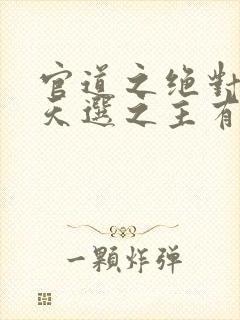 官道之绝對
天選之王有
一顆炸弹